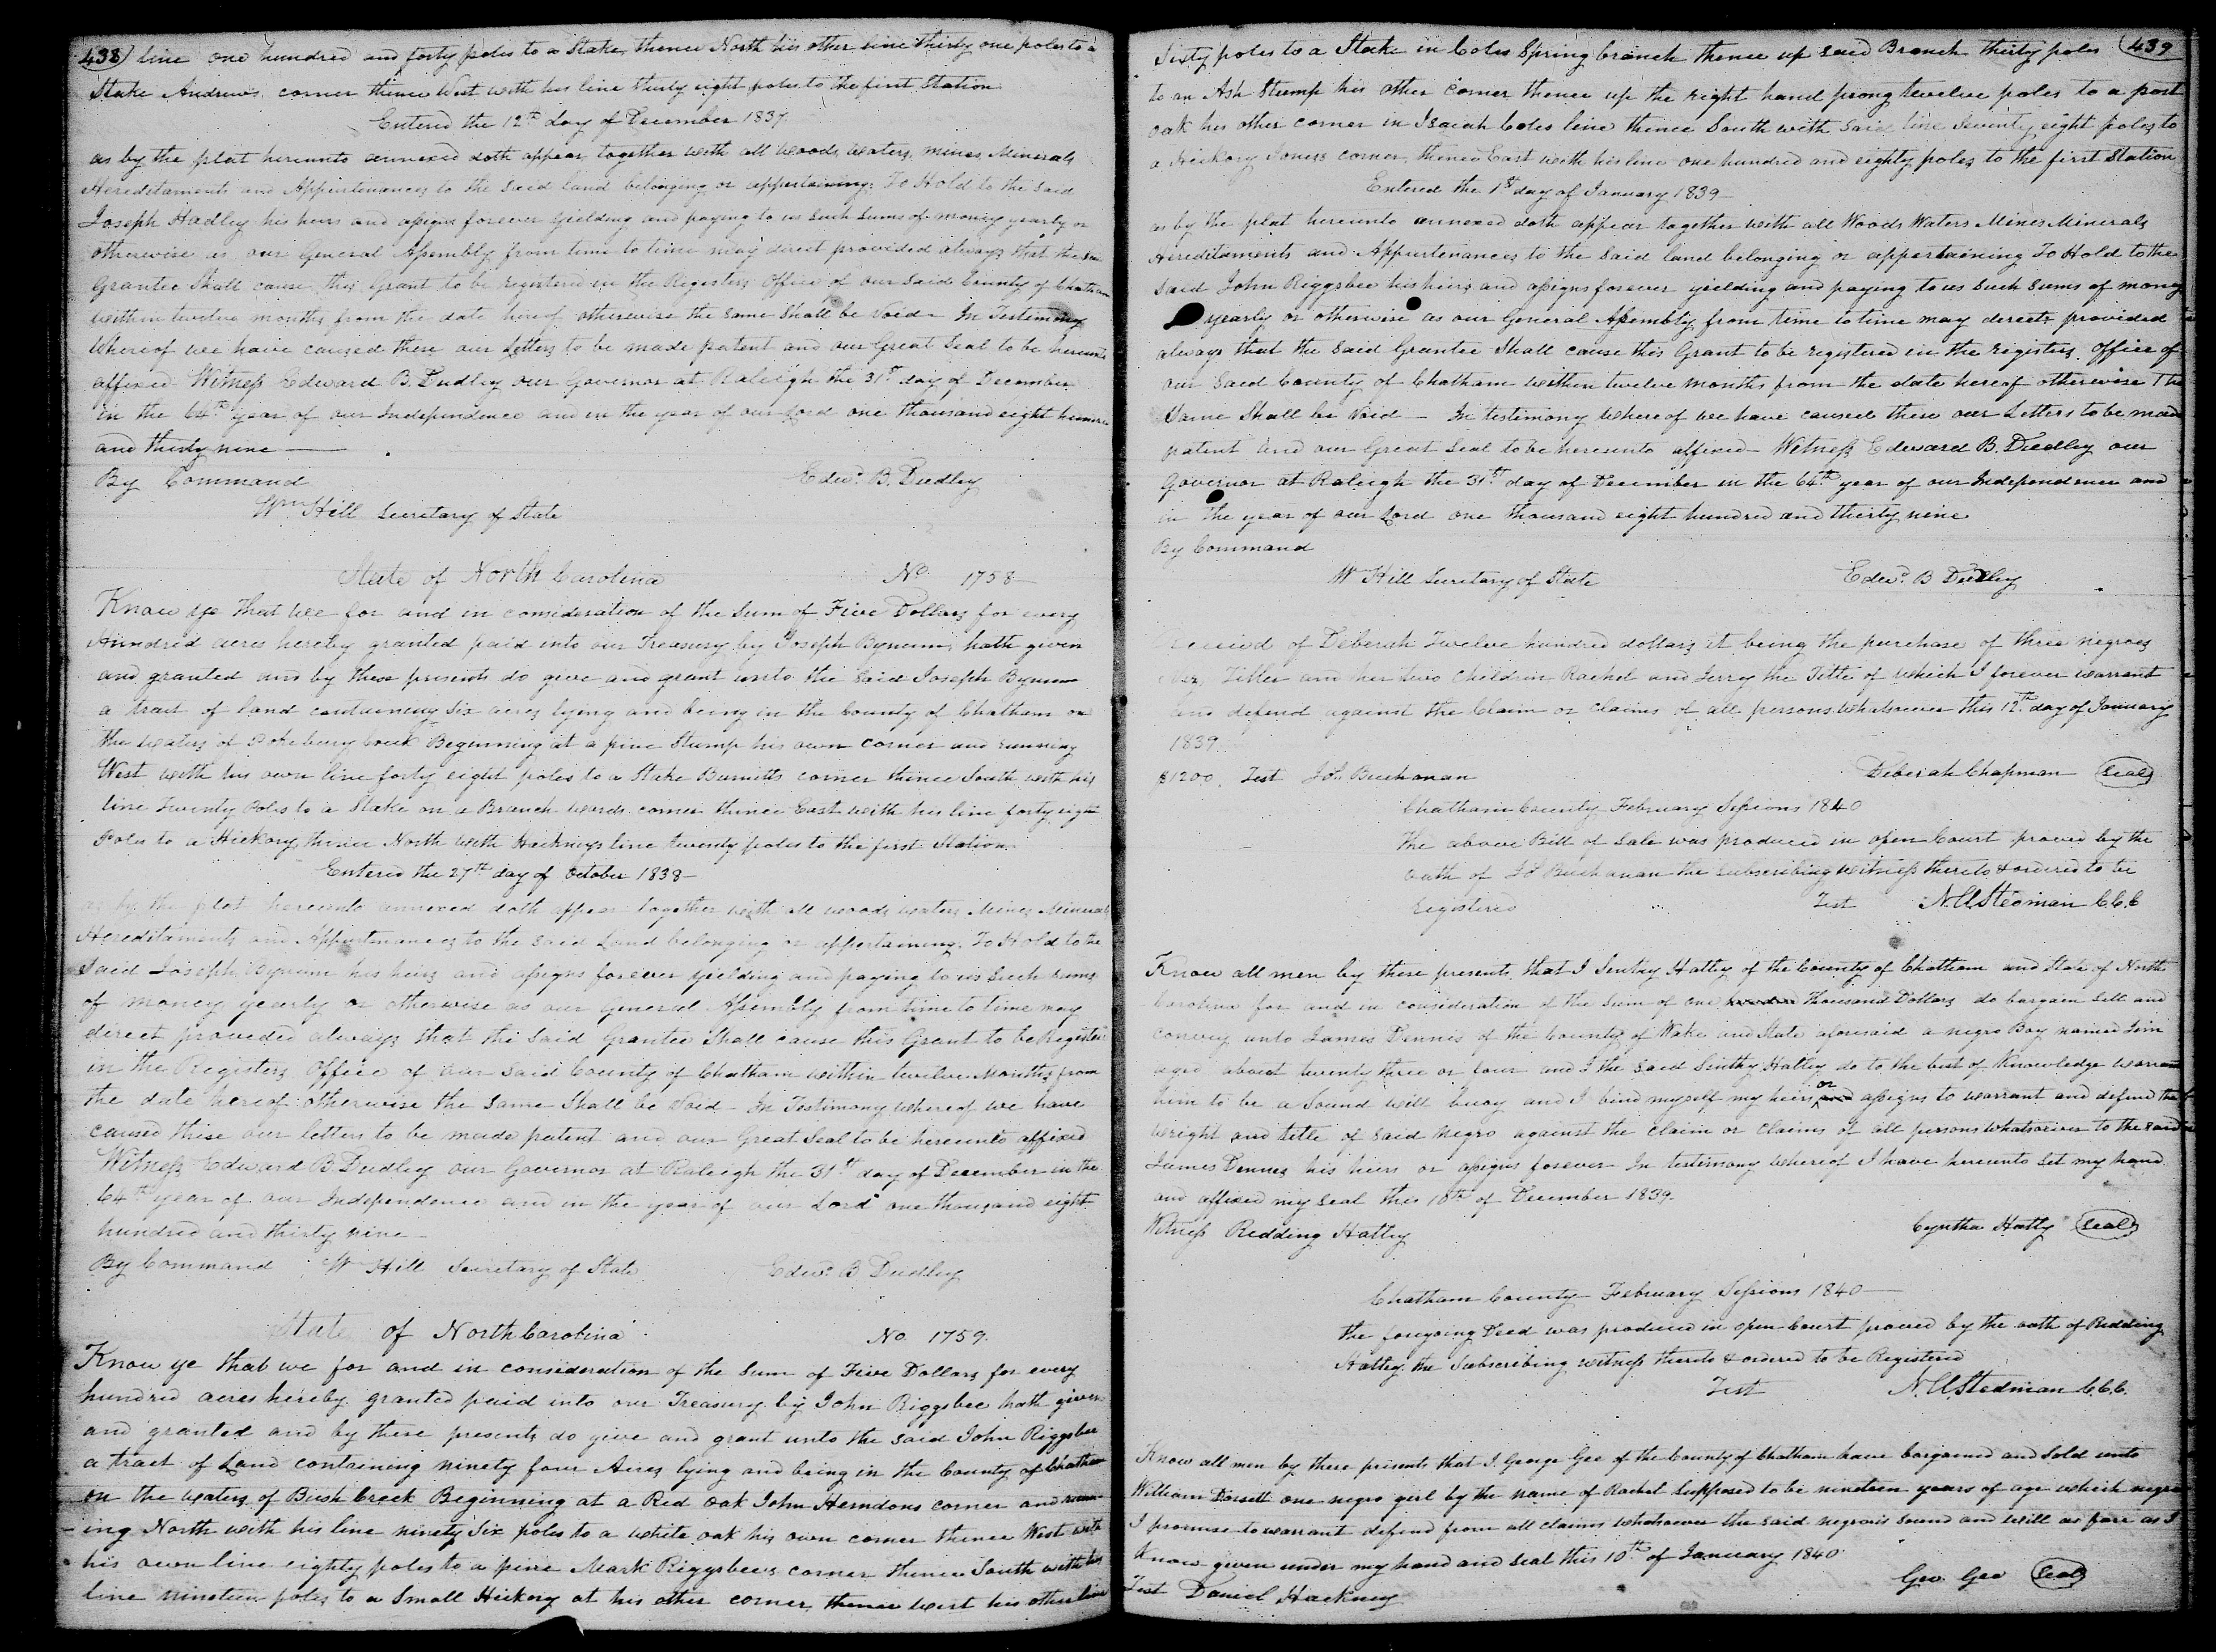 438) line one hundred and forty poles to a Stake, thence North his other line thirty one poles to a
Stake Andrews corner thence West with his line thirty eight poles to the first Station
Entered the 12th day of December 1837
as by the plat hereunto annexed doth appear, together with all woods, waters, mines, Minerals
Hereditaments and Appurtenances to the said land belonging or appertaining. To Hold to the said
Joseph Hadley his heirs and assigns forever yielding and paying to us such sums of money yearly or
otherwise as our General Assembly from time to time may direct provided always that the said
Grantee Shall cause this Grant to be registered in the Registers office of our said County of Chatham
within twelve months from the date hereof otherwise the same shall be void - In Testimony
Whereof we have caused these our Letters to be made patent and our Great Seal to be hereunto
affixed Witness Edward B. Dudley our Governor at Raleigh the 31st day of December
in the 64th year of our Independence and in the year of our Lord one thousand eight hundred
and thirty nine
By Command Edwd. B. Dudley
Wm Hill Secretary of State
State of North Carolina No. 1758
Know ye that we for and in consideration of the Sum of Five Dollars for every
Hundred acres hereby granted paid into our Treasury by Joseph Bynum, hath given
and granted and by these presents do give and grant unto the said Joseph Bynum
a tract of land containing six acres lying and being in the County of Chatham on
the waters of creek Beginning at a pine Stump his own corner and running
West with his own line forty eight poles to a Stake Burnetts corner thence South with his
line Twenty poles to a Stake on a Branch wards corner thence East with his line forty eight
Poles to a Hickory, thence North with Hackneys line twenty poles to the first Station.
Entered the 27th day of October 1838
as by the plat hereunto annexed doth appear together with all woods, waters, Mines, Minerals
Hereditaments and Appurtenances to the said Land belonging or appertaining. To Hold to the
Said Joseph Bynum his heirs and assigns forever yielding and paying to us such sums
of money yearly or otherwise as our General Assembly from time to time may
direct provided always that the said Grantee Shall cause this Grant to be Registered
in the Registers Office of our said County of Chatham within twelve Months from
the date hereof otherwise the same Shall be Void - In Testimony whereof we have
caused these our letters to be made patent and our Great Seal to be hereunto affixed
Witness Edward B Dudley our Governor at Raleigh the 31st day of December in the
64th year of our Independence and in the year of our Lord one thousand eight
hundred and thirty nine
By Command Wm Hill Secretary of State Edwd. B Dudley
State of North Carolina No. 1759.
Know ye that we for and in consideration of the Sum of Five Dollars for every
hundred acres hereby granted paid into our Treasury by John Riggsbee hath given
and granted and by these presents do give and grant unto the said John Riggsbee
a tract of Land containing ninety four Acres lying and being in the County of Chatham
on the waters of Bush Creek Beginning at a Red oak John Herndons corner and runn-
ing North with his line ninety Six poles to a white oak his own corner thence West with
his own line eighty poles to a pine Mark Riggsbees corner thence South with his
line nineteen poles to a Small Hickory at his other corner, thence west his other line
Sixty poles to a Stake in Coles Spring branch thence up said Branch thirty poles (439
to an Ash Stump his other corner thence up the right hand prong twelve poles to a post
oak his other corner in Isaiah Coles line thence South with said line Seventy eight poles to
a Hickory Jones's corner, thence East with his line one hundred and eighty poles, to the first Station
Entered the 1st day of January 1839
as by the plat hereunto annexed doth appear together with all Woods Waters Mines Minerals
Hereditaments and Appurtenances to the said land belonging or appertaining To Hold to the
said John Riggsbee his heirs and assigns forever yielding and paying to us such sums of money
yearly or otherwise as our General Assembly from time to time may direct provided
always that the said Grantee Shall cause this Grant to be registered in the registers Office of
our said County of Chatham within twelve months from the date hereof otherwise The
Same Shall be Void - In testimony whereof we have caused these our Letters to be made
patent and our Great Seal to be hereunto affixed - Witness Edward B. Dudley our
Governor at Raleigh the 31st day of December in the 64th year of our Independence and
in the year of our Lord one thousand eight hundred and thirty nine
By Command
W Hill Secretary of State Edwd. B Dudley
Received of Deberah Twelve hundred dollars it being the purchase of three negroes
Viz, Tiller and her two Children Rachel and Jerry the Title of which I forever warrant
and defend against the Claim or claims of all persons Whatsoever this 12th day of January
1839
$1200. Test J.S. Buchanan Deberah Chapman (seal)
Chatham County February Sessions 1840
The above Bill of Sale was produced in open Court proved by the
oath of J S Buchanan the subscribing witness thereto & ordered to be
Registered Test N. A. Stedman C.C.C
Know all men by these presents, that I Senthy Hatley of the County of Chatham and State of North
Carolina for and in consideration of the Sum of one Thousand Dollars do bargain Sell and
convey unto James Dennis of the County of Wake and State aforesaid a negro Boy named Jim
aged about twenty three or four and I the said Sinthy Hatley do to the best of Knowledge warrant
him to be a Sound will buoy and I bind myself my heirs or assigns to warrant and defend the
wright and title of said Negro against the claim or claims of all persons whatsoever to the said
James Dennes his heirs or assigns forever - In testimony whereof I have hereunto Set my hand
and affixed my seal this 10th of December 1839.
Witness Redding Hatley Cyntha Hatly (seal)
Chatham County February Sessions 1840
The foregoing Deed was produced in open Court proved by the oath of Redding
Hatley the Subscribing witness thereto & ordered to be Registered
Test N. A. Stedman C.C.C.
Know all men by these presents that I George Gee of the County of Chatham have bargained and Sold unto
William Dorsett one negro girl by the name of Rachel Supposed to be nineteen years of age which negro
I promise to warrant defend from all claims whatsoever the said negrois sound and will as fare as I
Know given under my hand and seal this 10th of January 1840
Test Daniel Hackney Geo Gee (seal)